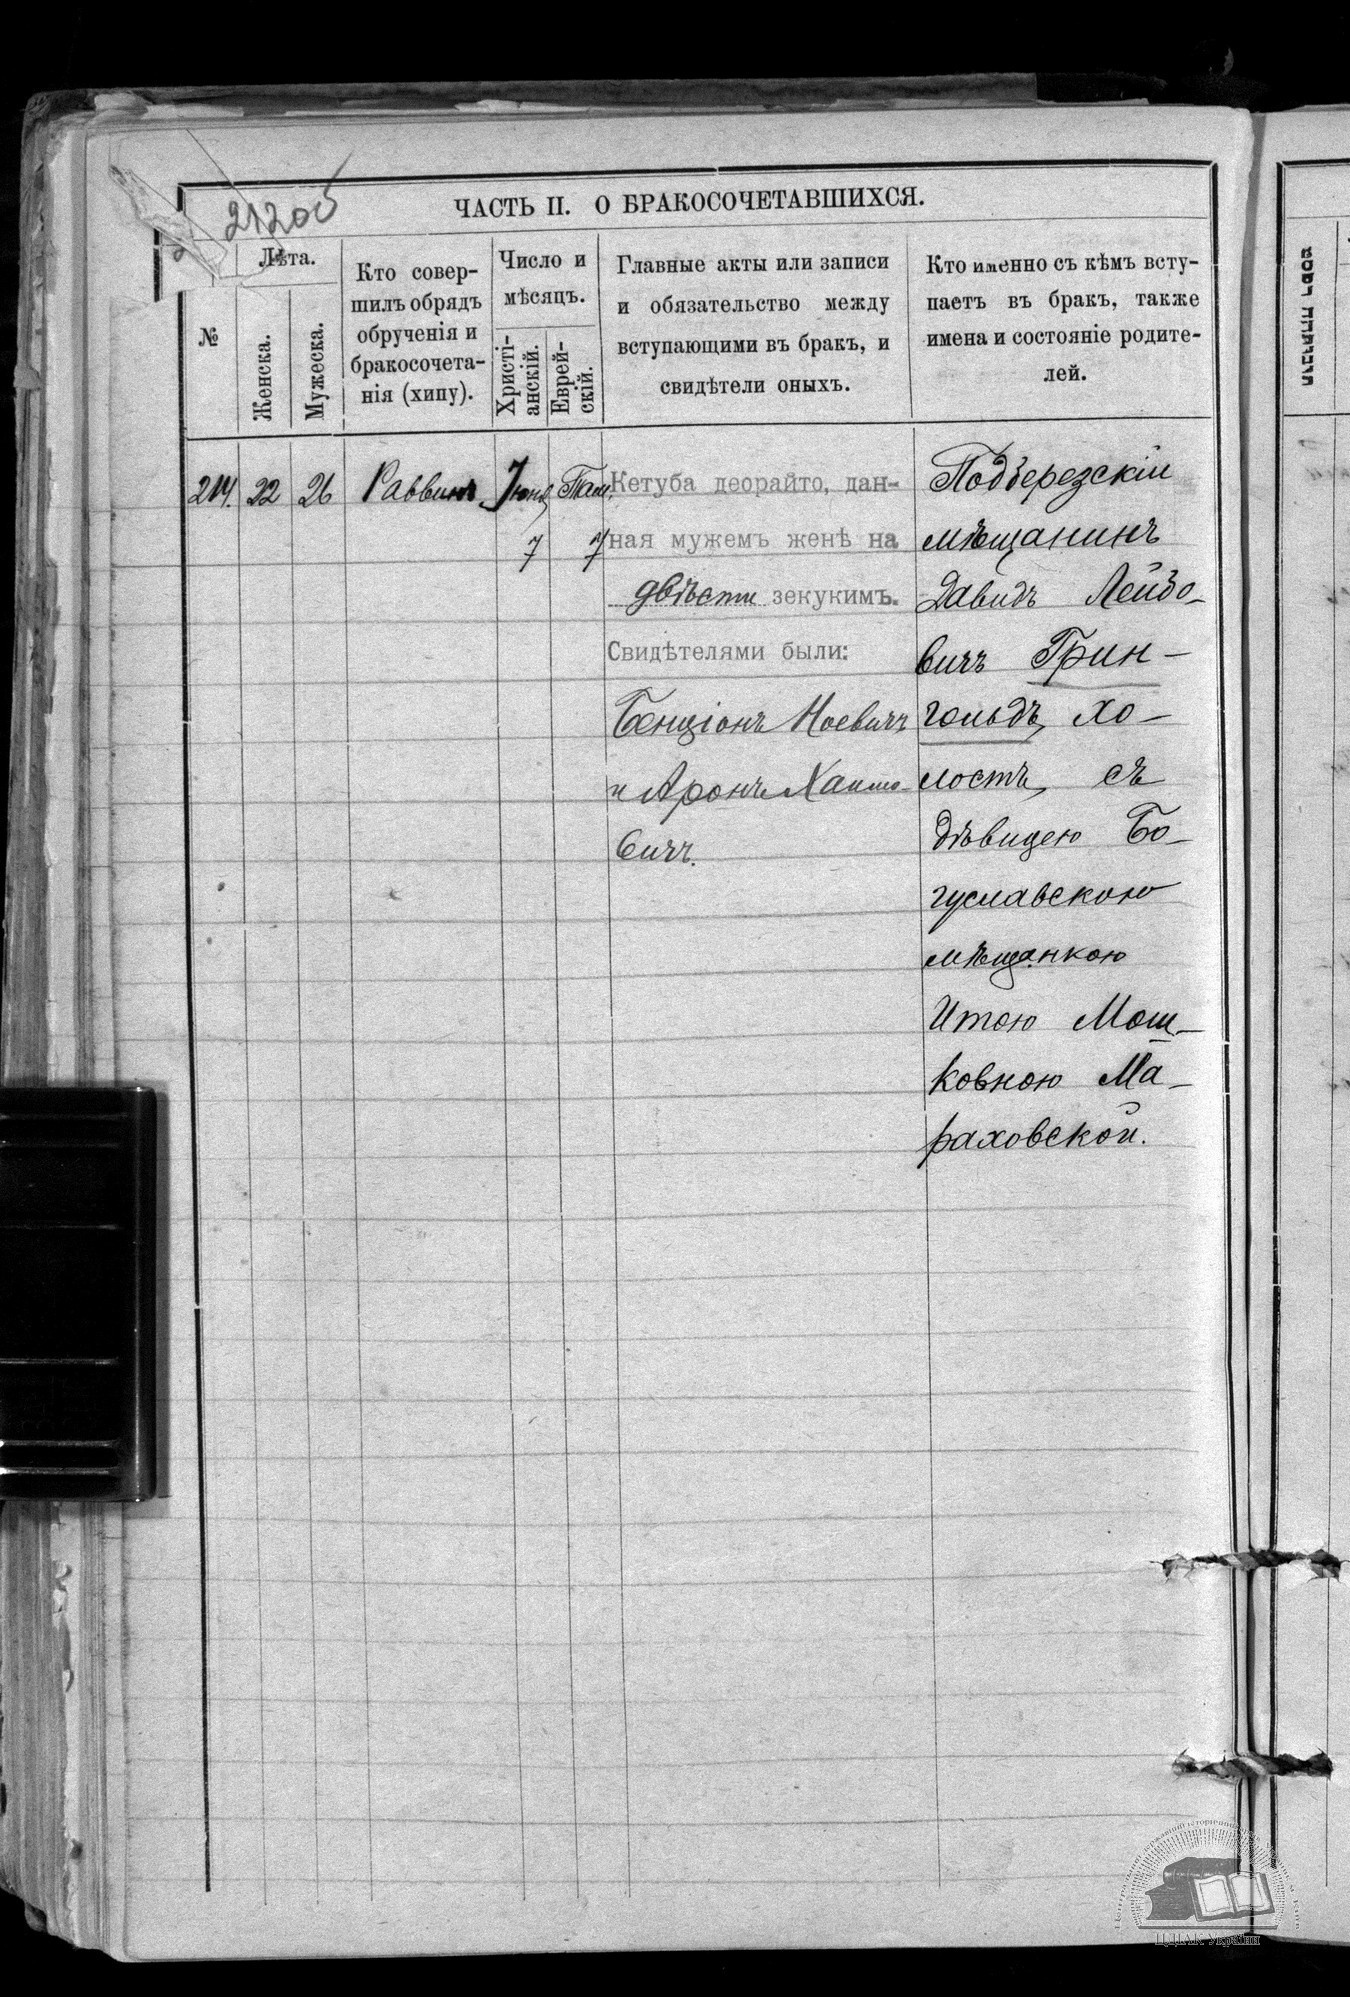 ЧАСТЬ II. О БРАКОСОЧЕТАВШИХСЯ.
№
Лѣта.
Женска.
Мужеска.
Кто совер-
шилъ обрядъ
обрученія и
бракосочета-
нія (хипу).
Число и
мѣсяцъ.
Христі-
анскій.
Еврей-
скій.
Главные акты или записи
и обязательство между
вступающими въ бракъ, и
свидѣтели оныхъ.
Кто именно съ кѣмъ всту-
паетъ въ бракъ, также
имена и состояніе родите-
лей.
214. 22 26 Раввинъ Іюня Там.
7 7
Кетуба деорайто, дан-
ная мужемъ женѣ на
двѣсти зекукимъ.
Свидѣтелями были:
Бенціонъ Ноевичъ
и Аронъ Хаимо-
вичъ.
Подберезскій
мѣщанинъ
Давидъ Лейбо-
вичъ Грин-
гольдъ, хо-
лостъ, съ
дѣвицею Бо-
гуславскою
мѣщанкою
Итою Мош-
ковною Ма-
раховской.
ЦДІАК України